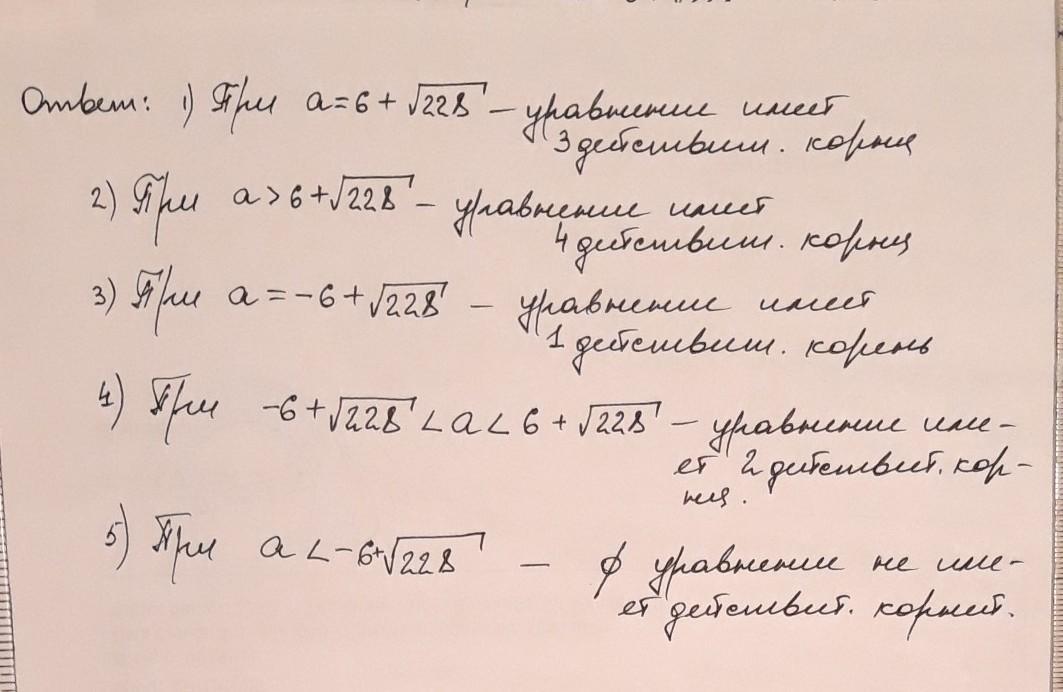 Ответ: 1) При a = 6 + √228 – уравнение имеет
3 действит. корня
2) При a > 6 + √228 – уравнение имеет
4 действит. корня
3) При a = -6 + √228 – уравнение имеет
1 действит. корень
4) При -6 + √228 < a < 6 + √228 – уравнение име-
ет 2 действит. кор-
ня.
5) При a < -6 + √228 – ∅ уравнение не име-
ет действит. корней.